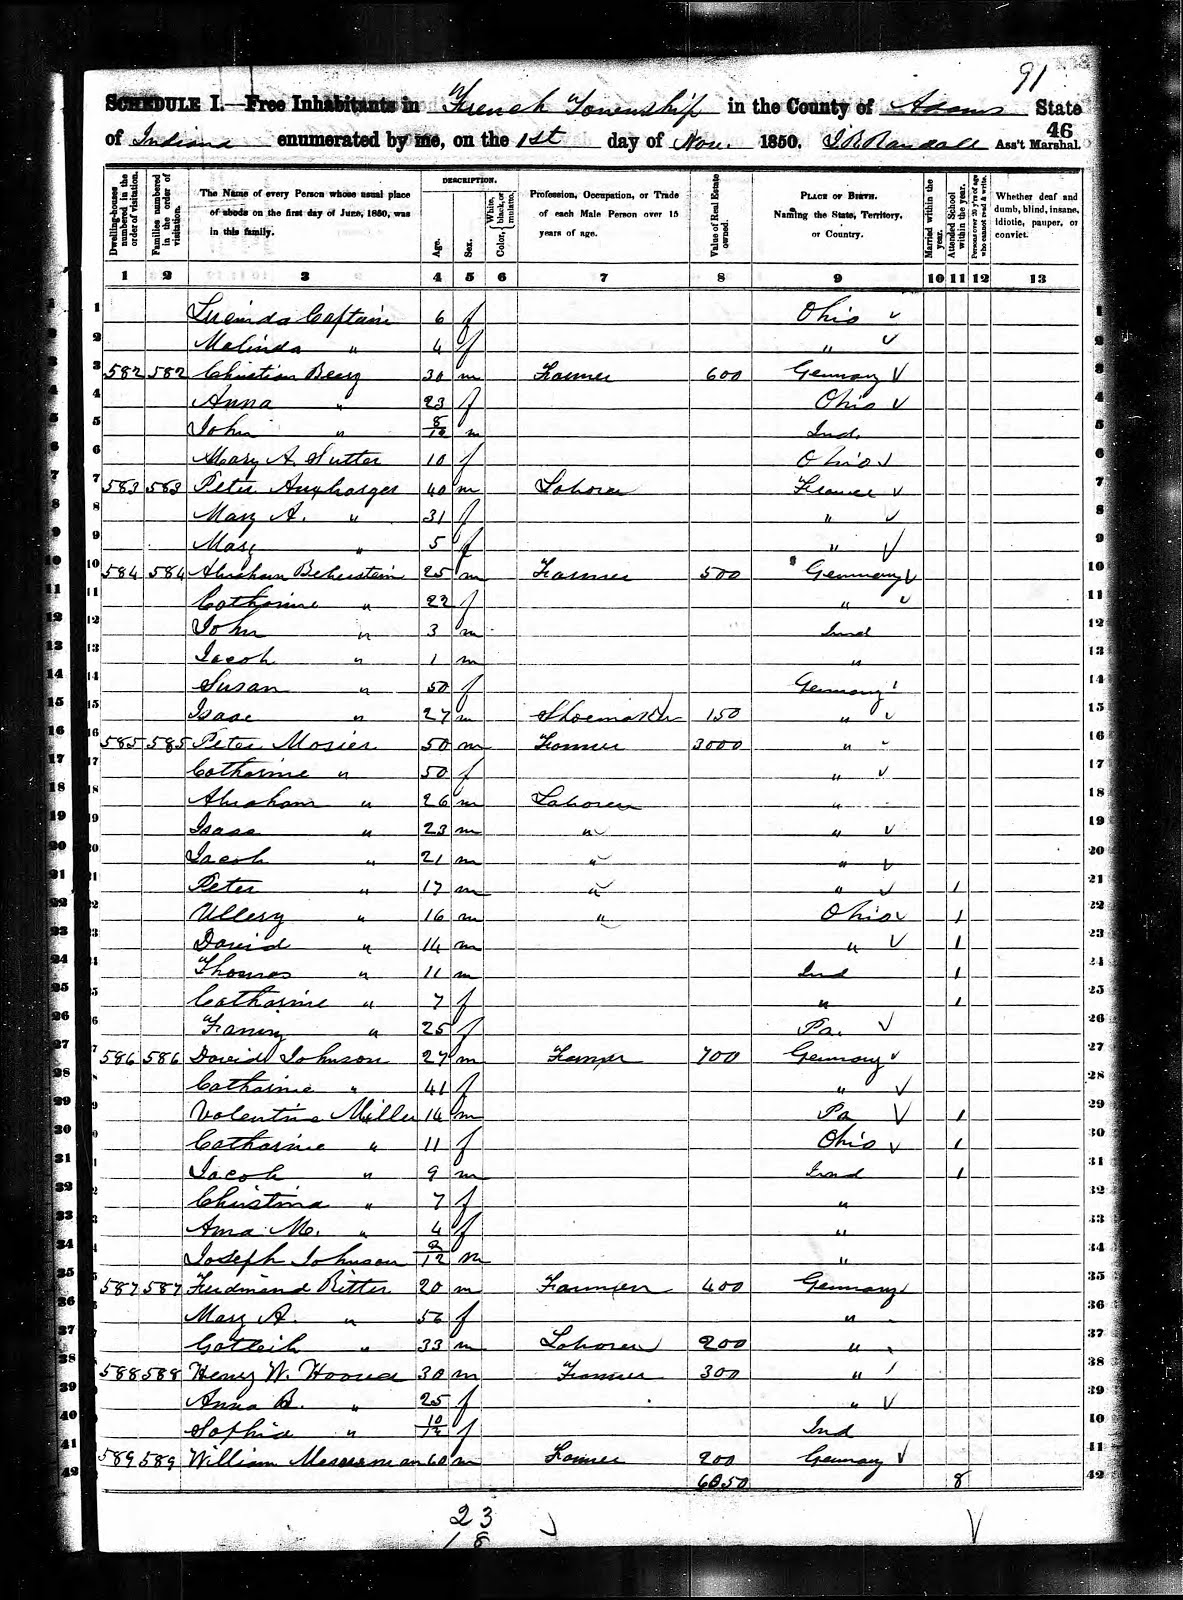 91
SCHEDULE I.—Free Inhabitants in French Township in the County of Adams State
46
of Indiana enumerated by me, on the 1st day of Nov. 1850. J R Randall Ass't Marshal.
Dwelling-houses numbered in the order of visitation.
Families numbered in the order of visitation.
The Name of every Person whose usual place of abode on the first day of June, 1850, was in this family.
DESCRIPTION.
Age.
Sex.
Color, White, black, or mulatto.
Profession, Occupation, or Trade of each Male Person over 15 years of age.
Value of Real Estate owned.
PLACE OF BIRTH. Naming the State, Territory, or Country.
Married within the year.
Attended School within the year.
Persons over 20 y'rs of age who cannot read & write.
Whether deaf and dumb, blind, insane, idiotic, pauper, or convict.
1 2 3 4 5 6 7 8 9 10 11 12 13
1 Lucinda Captain 6 f Ohio
2 Malinda " 4 f "
3 582 582 Christian Beery 30 m Farmer 600 Germany
4 Anna " 23 f Ohio
5 John " 8/12 m Ind.
6 Mary A. Sutter 10 f Ohio
7 583 583 Peter 40 m Laborer France
8 Mary A. " 31 f "
9 Mary " 5 f "
10 584 584 Abraham Beherstein 25 m Farmer 500 Germany
11 Catharine " 22 f "
12 John " 3 m Ind
13 Jacob " 1 m "
14 Susan " 50 f Germany
15 Isaac " 27 m Shoemaker 150 "
16 585 585 Peter Mosier 50 m Farmer 3000 "
17 Catharine " 50 f "
18 Abraham " 26 m Laborer "
19 Isaac " 23 m " "
20 Jacob " 21 m " "
21 Peter " 17 m " " 1
22 Ullery " 16 m " Ohio 1
23 David " 14 m " 1
24 Thomas " 11 m Ind 1
25 Catharine " 7 f " 1
26 Fanny " 25 f Pa.
27 586 586 David Johnson 27 m Farmer 700 Germany
28 Catharine " 41 f "
29 Valentine Miller 14 m Pa 1
30 Catharine " 11 f Ohio 1
31 Jacob " 9 m Ind 1
32 Christina " 7 f "
33 Anna M. " 4 f "
34 Joseph Johnson 2/12 m "
35 587 587 Ferdinand Ritter 20 m Farmer 400 Germany
36 Mary A. " 56 f "
37 Gotleib " 33 m Laborer 200 "
38 588 588 Henry W. 30 m Farmer 300 "
39 Anna B. " 25 f "
40 Sophia " 10/12 f Ind
41 589 589 William Messerman 60 m Farmer 200 Germany
42 6050 8
23
18